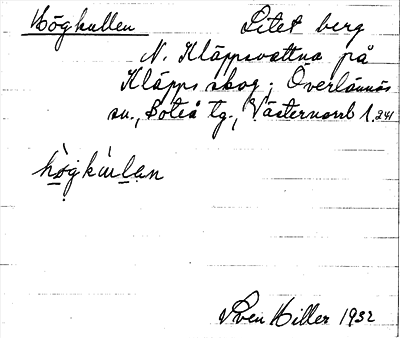 Högkullen Litet berg
N. Kläppsvattna på
Kläpps skog; Överlännäs
sn., Boteå tg., Västernorrl l. 241
högkulan
Sven Hiller 1932